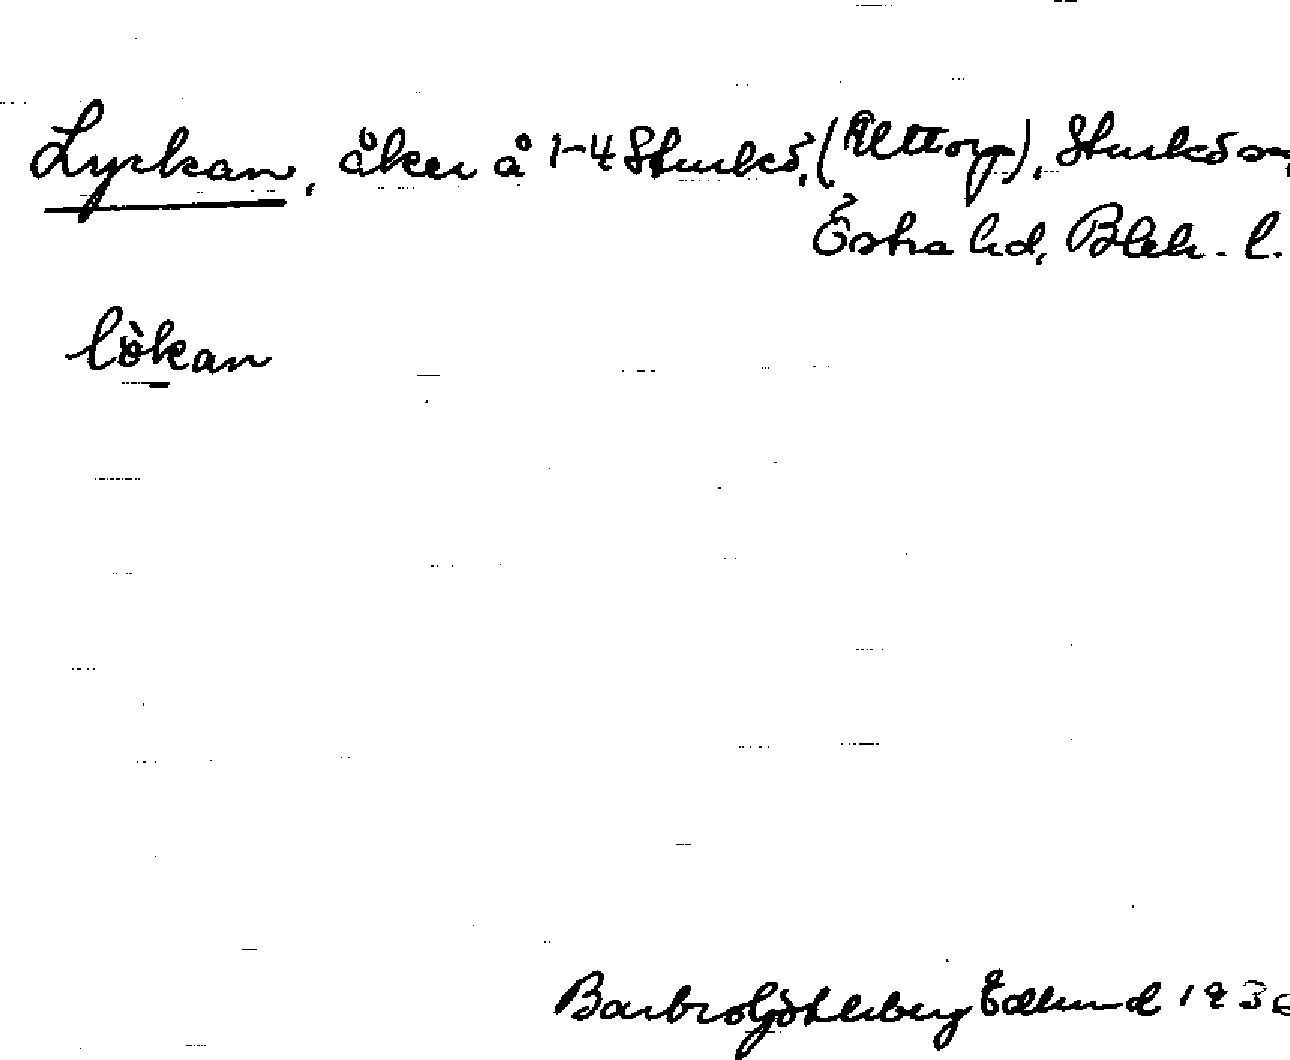 Lyckan, åker å 1-4 Sturkö, (Uttorp), Sturkö sn,
Östra hd, Blek. l.
lòkan
Barbro Götleberg Edlund 193